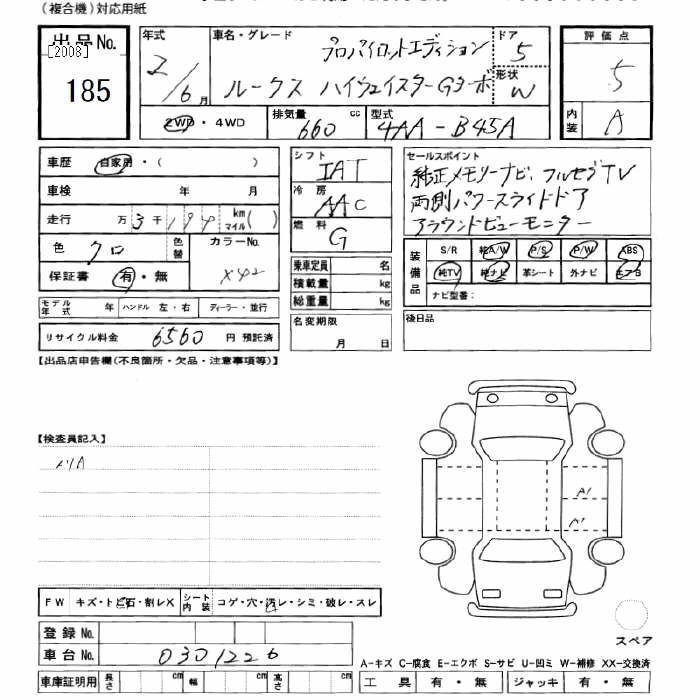 (複合機)対応用紙
出品No.
[2008]
185
年式
2/6月
車名・グレード
プロパイロットエディション
ルークス ハイウェイスターGターボ
ドア
5
形状
W
評価点
5
内装
A
2WD・4WD
排気量
660 cc
型式
4AA-B45A
車歴 自家用・( )
車検 年 月
走行 万 3千194 km マイル( )
色 クロ
色替
カラーNo.
X42
保証書 有・無
シフト
IAT
冷房
AAC
燃料
G
乗車定員 名
積載量 kg
総重量 kg
セールスポイント
純正メモリーナビ、フルセグTV
両側パワースライドドア
アラウンドビューモニター
装備品
S/R 純A/W P/S P/W ABS
純TV 純ナビ 革シート 外ナビ エアB
ナビ型番:
モデル年式 年 ハンドル 左・右 ディーラー・並行
リサイクル料金 6560 円 預託済
名変期限
月 日
後日品
【出品店申告欄(不良箇所・欠品・注意事項等)】
【検査員記入】
A1
A1
FW キズ・ト石・割レX シート内装 コゲ・穴・汚レ・シミ・破レ・スレ
登録No.
車台No. 0301226
スペア
A-キズ C-腐食 E-エクボ S-サビ U-凹ミ W-補修 XX-交換済
車庫証明用 長さ cm 幅 cm 高さ cm
工具 有・無 ジャッキ 有・無